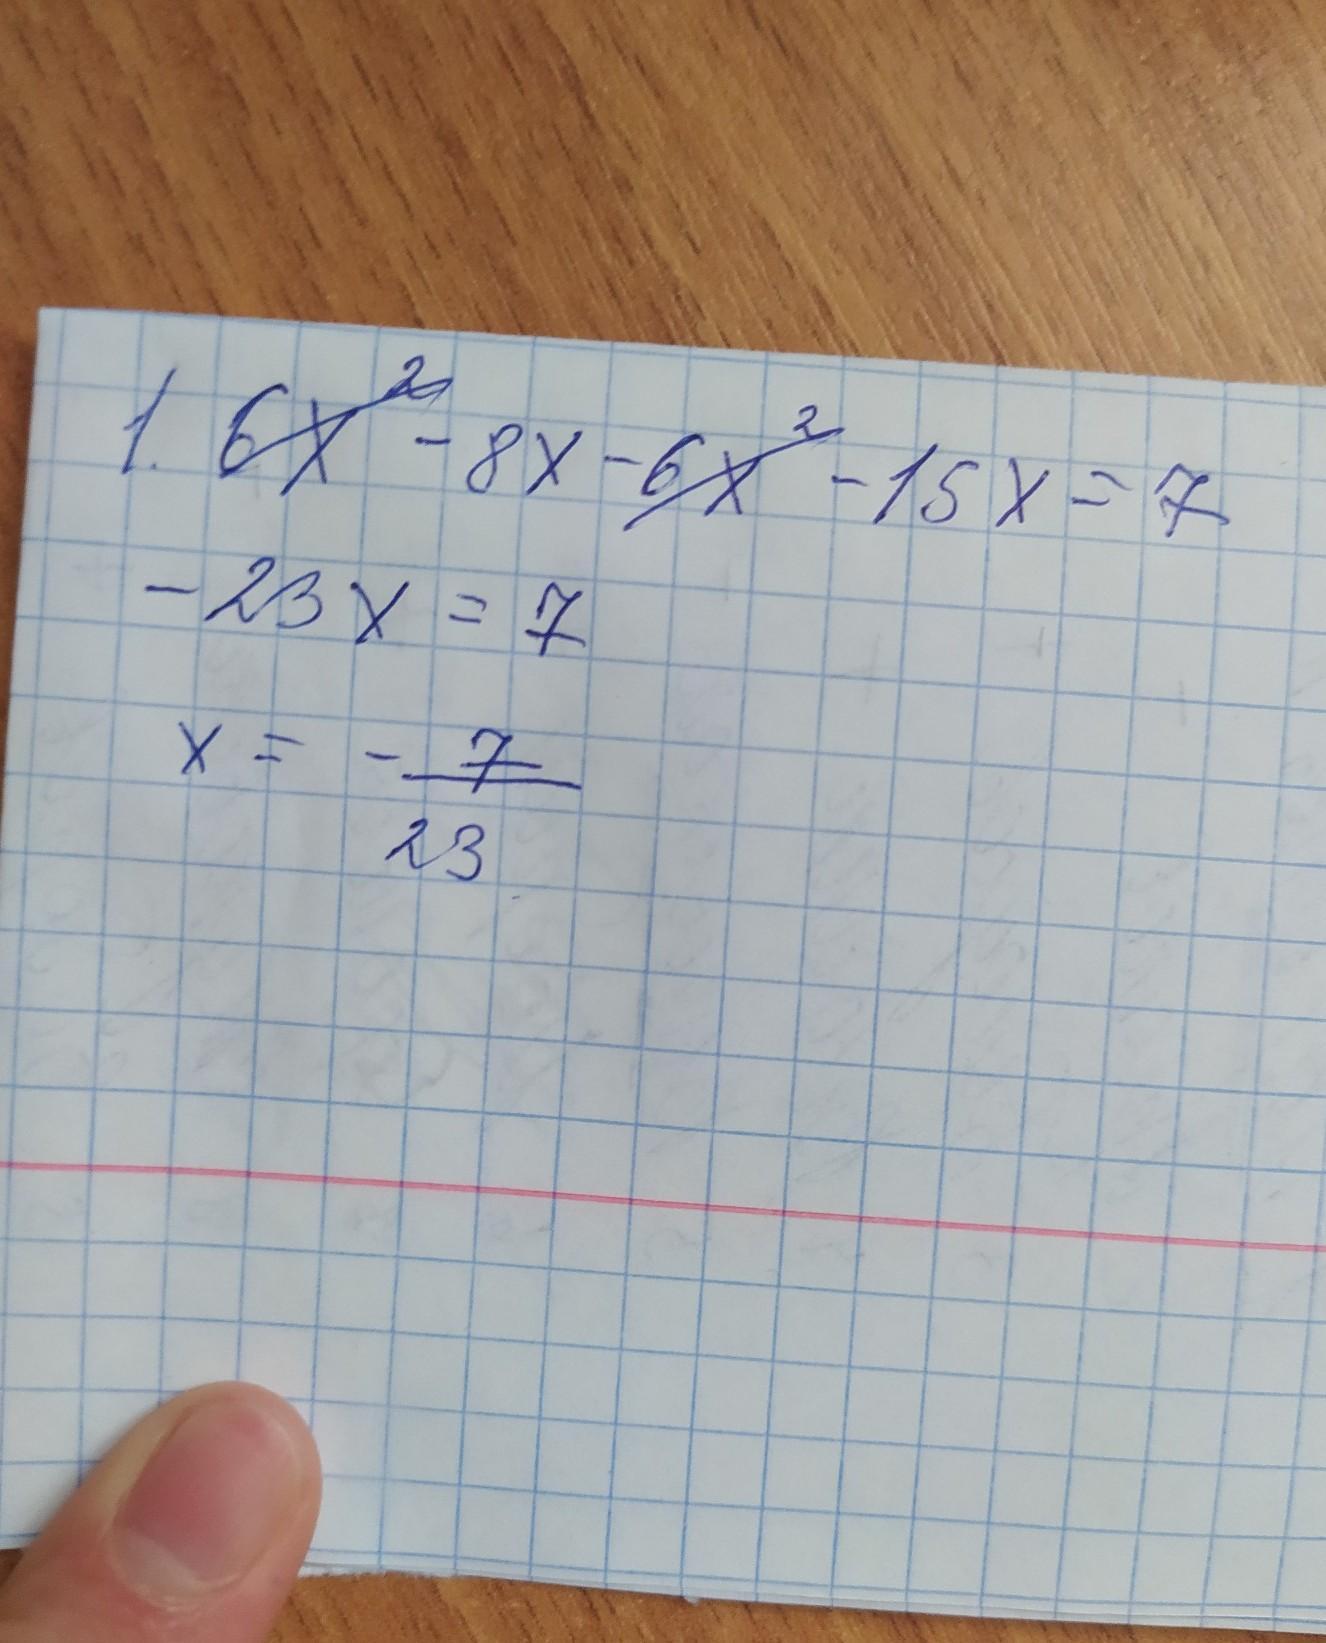 1. 6x² - 8x - 6x² - 15x = 7
- 23x = 7
x = - 7/23